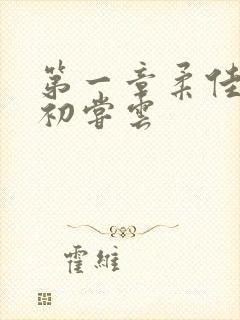 第一章柔佳
初尝雲
霍維